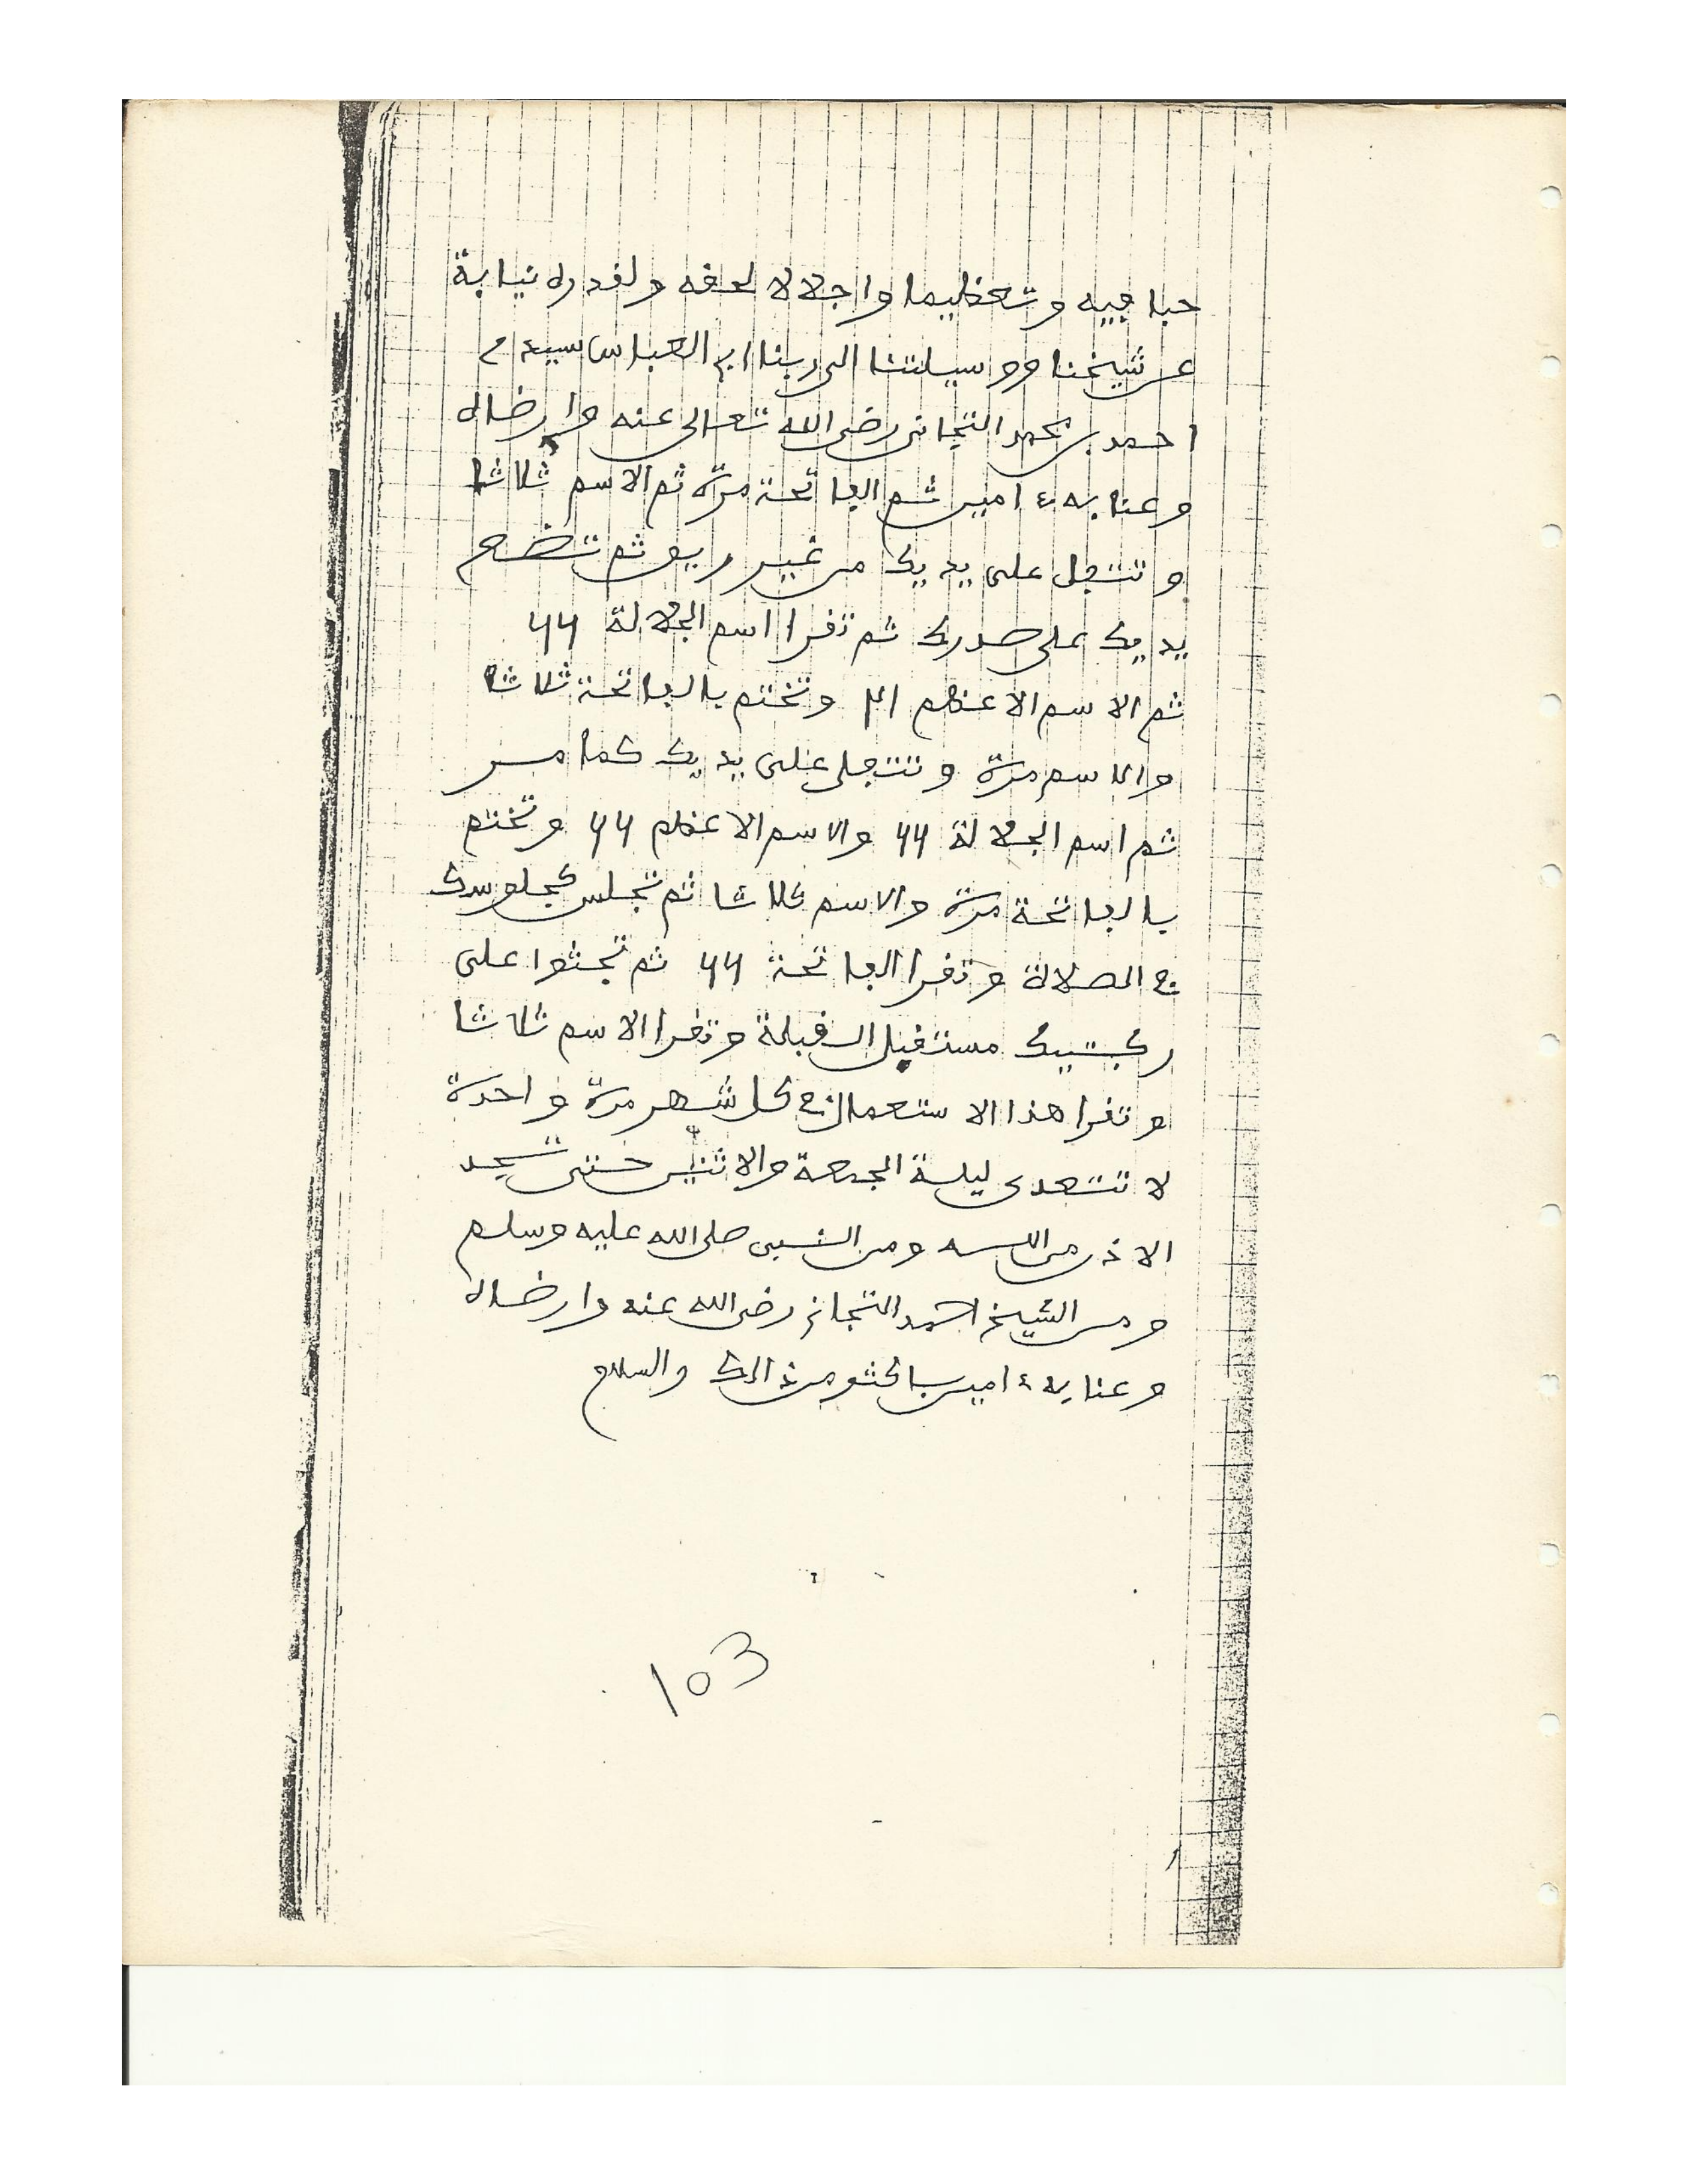 حبا فيه وتعظيما واجلالا لحقه ولقدره نيابة
عن شيخنا ووسيلتنا الى ربنا ابى العباس سيد
احمد بن محمد التجانى رضى الله تعالى عنه وارضاه
وعنا به ءامين ثم الفاتحة مرة ثم الاسم ثلاثا
وتتفل على يديك من غير ريق ثم تضع
يديك على صدرك ثم تقرا اسم الجلالة 44
ثم الاسم الاعظم وتختم بالفاتحة ثلاثا
والاسم مرة وتتفل على يديك كما مر
ثم اسم الجلالة 44 والاسم الاعظم 44 وتختم
بالفاتحة مرة والاسم ثلاثا ثم تجلس كجلوسك
في الصلاة وتقرا الفاتحة 44 ثم تجثوا على
ركبتيك مستقبل القبلة وتقرا الاسم ثلاثا
وتقرا هذا الاستعمال في كل شهر مرة واحدة
لا تتعدى ليلة الجمعة والاثنين حتى تجد
الاذن من الله ومن النبى صلى الله عليه وسلم
ومن الشيخ احمد التجانى رضى الله عنه وارضاه
وعنا به ءامين باكثر من ذالك والسلام
103